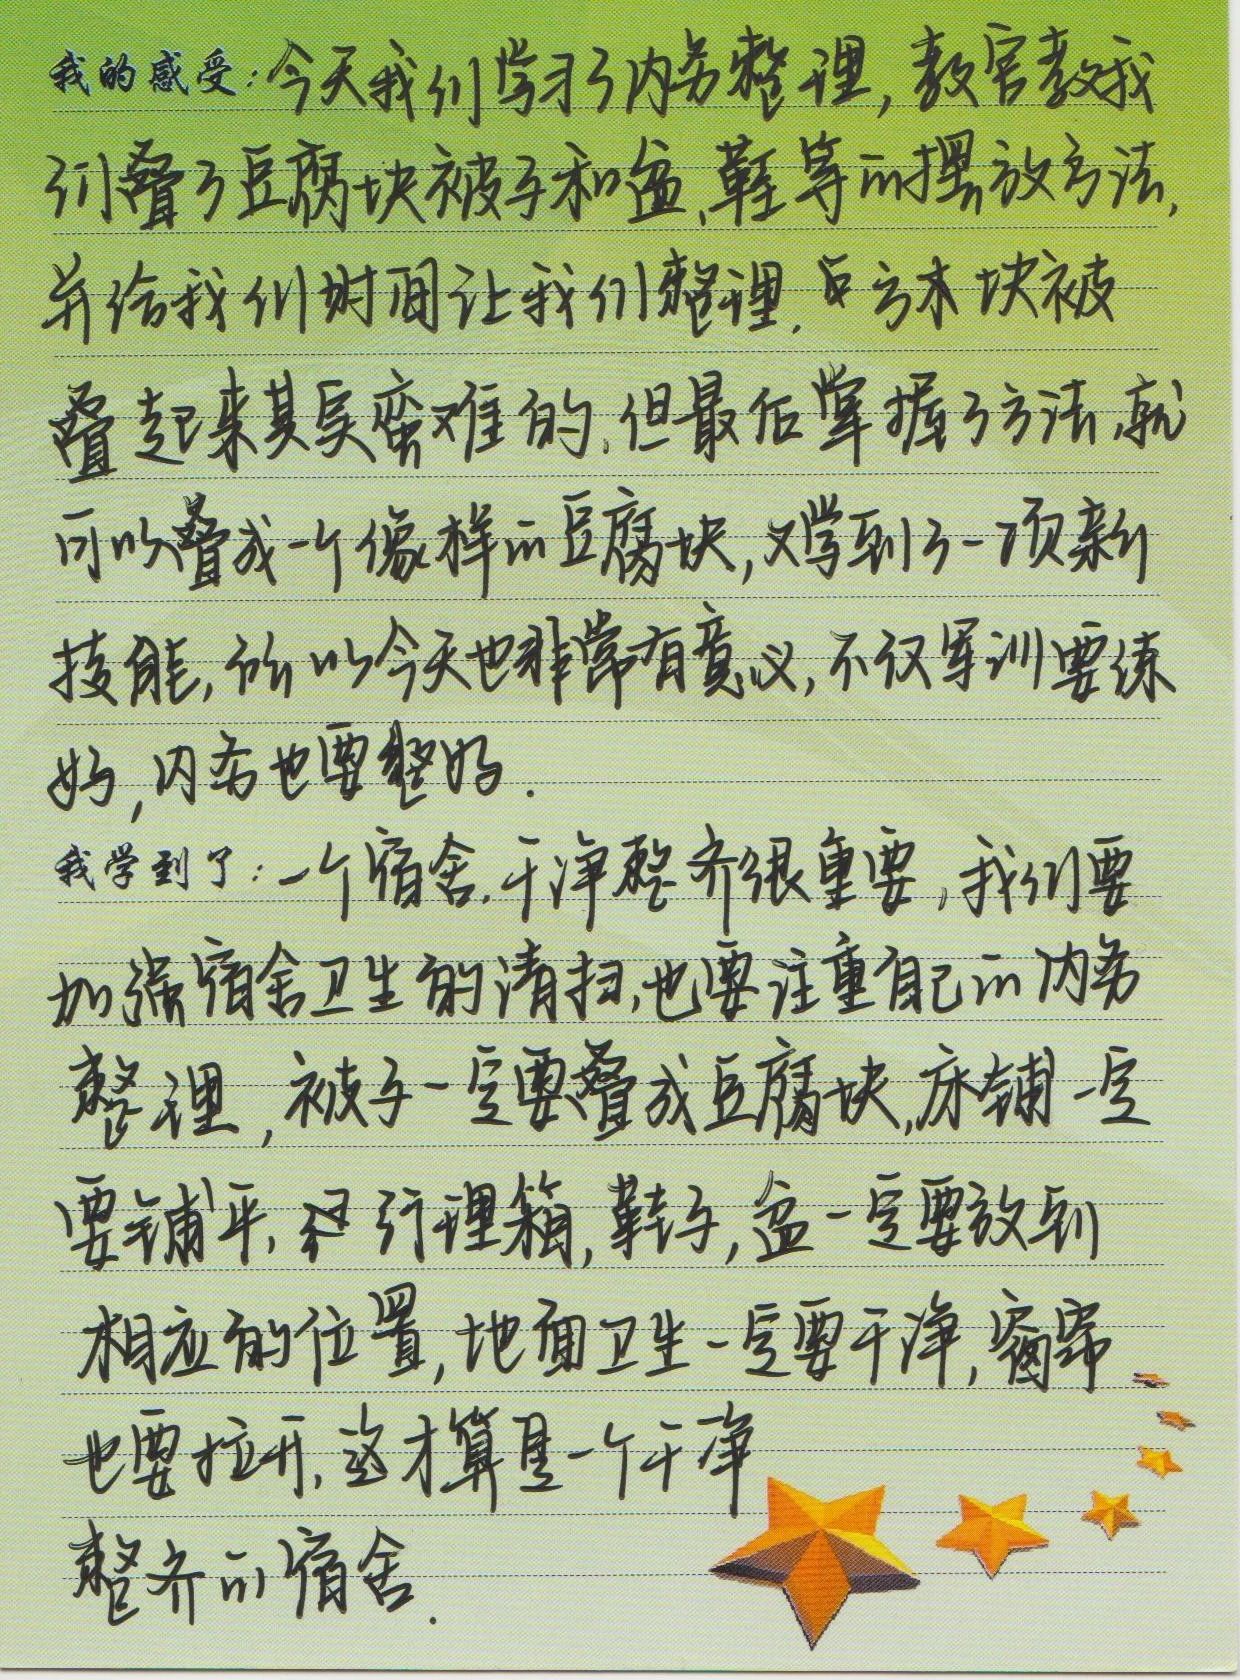 我的感受：今天我们学习了内务整理，教官教我
们叠了豆腐块被子和盆、鞋等的摆放方法，
并给我们时间让我们整理，块被
叠起来其实蛮难的，但最后掌握了方法，就
可以叠成一个像样的豆腐块，又学到了一项新
技能，所以今天也非常有意义，不仅军训要练
好，内务也要整好．
我学到了：一个宿舍，干净整齐很重要，我们要
加强宿舍卫生的清扫，也要注重自己的内务
整理，被子一定要叠成豆腐块，床铺一定
要铺平，行理箱，鞋子，盆一定要放到
相应的位置，地面卫生一定要干净，窗帘
也要拉开，这才算是一个干净
整齐的宿舍．